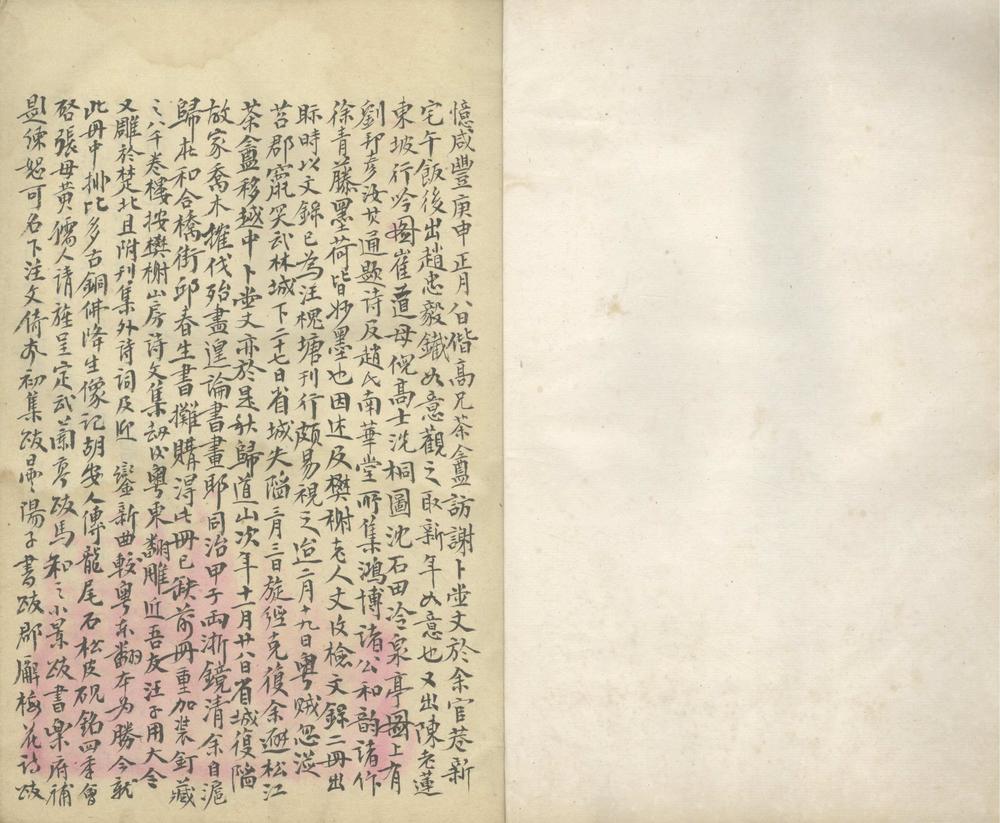 憶咸豐庚申正月八日偕高兄茶盦訪謝卜堂丈於余官巷新
宅午飯後出趙忠毅鐵如意觀之取新年如意也又出陳老蓮
東坡行吟圖崔道母倪高士洗桐圖沈石田冷泉亭圖上有
劉邦彥汝其通題詩及趙氏南華堂所集鴻博諸公和韵諸作
徐青藤墨荷皆妙墨也因述及樊榭老人丈攷檢文錄二冊出
眎時以文錄已為汪槐塘刊行頗易視之迨二月十九日粵賊忽溢
苕郡竄哭武林城下二十七日省城失陷三月三日旋經克復余避松江
茶盦移越中卜堂丈亦於是秋歸道山次年十一月廿八省城復陷
故家喬木摧伐殆盡遑論書畫耶同治甲子兩浙鏡清余自滬
歸在和合橋街邱春生書攤購得此冊已缺前冊重加裝釘藏
之八千卷樓按樊榭山房詩文集刧後粵東翻雕近吾友汪子用大令
又雕於楚北且附刊集外詩詞及迎鑾新曲較粵東翻本為勝今就
此冊中排比多古銅佛降生像記胡安人傳龍尾石松皮硯銘四季會
啓張母黃孺人請旌呈定武蘭亭跋馬和之小景跋書樂府補
題練恕可名下注文倚声初集跋曇陽子書跋郡廨梅花詩跋